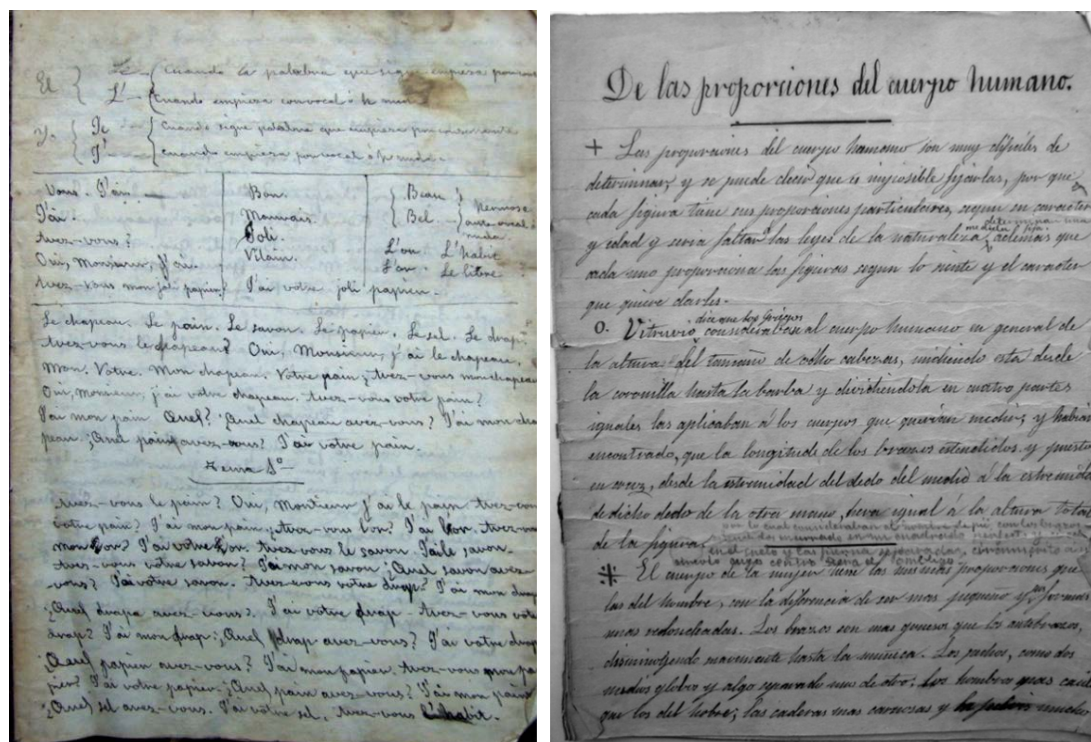 El { Le { Cuando la palabra que sigue empieza por
L' { Cuando empieza con vocal ó h muda
Yo { Je { Cuando sigue palabra que empieza por consonante
J' { Cuando empieza por vocal ó h muda.
Vous. J'ai.
J'ai.
Avez-vous?
Oui, Monsieur, J'ai.
Avez-vous mon joli papier?
Bon.
Mauvais.
Joli.
Vilain.
J'ai votre joli papier.
{ Beau } Hermoso
{ Bel } ante vocal ó
muda.
L'or L'habit
Le libre
Le chapeau. Le pain. Le savon. Le papier. Le sel. Le drap.
Avez-vous le chapeau? Oui, Monsieur, j'ai le chapeau.
Mon. Votre. Mon chapeau. Votre pain ¿Avez-vous mon chapeau
Oui, Monsieur, j'ai votre chapeau. Avez-vous votre pain?
J'ai mon pain Quel? ¿Quel chapeau avez-vous? J'ai mon cha
peau. ¿Quel pain avez-vous? J'ai votre pain.
Tema 1º
Avez-vous le pain? Oui, Monsieur j'ai le pain. Avez-vou
votre pain? J'ai mon pain ¿Avez-vous l'or? J'ai l'or. Avez-vou
mon or? J'ai votre or. Avez vous le savon. J'ai le savon.
Avez-vous votre savon? J'ai mon savon ¿Quel savon avez-
vous? J'ai votre savon. Avez-vous votre drap? J'ai mon drap
¿Quel drap avez-vous? J'ai votre drap. Avez-vous votre
drap? J'ai mon drap; ¿Quel drap avez-vous? J'ai votre drap
¿Quel papier avez-vous? J'ai mon papier. Avez-vous mon pa
pier? J'ai votre papier. ¿Quel pain avez-vous? J'ai mon pain
¿Quel sel avez-vous. J'ai votre sel. Avez-vous l'habit.
De las proporciones del cuerpo humano.
+ Las proporciones del cuerpo humano son muy difíciles de
determinar, y se puede decir que es imposible fijarlas, por que
cada figura tiene sus proporciones particulares, segun su caracter
determina una
medida fija
y edad y seria faltar á las leyes de la naturaleza, además que
cada uno proporciona las figuras segun lo siente y el caracter
que quiere darles.
dia que los griegos
O. Vitruvio consideraban al cuerpo humano en general de
la altura del tamaño de ocho cabezas, midiendo esta desde
la coronilla hasta la barba y dividiendola en cuatro partes
iguales las aplicaban á los cuerpos que querian medir; y habian
encontrado, que la longitud de los brazos estendidos y puestos
en cruz, desde la estremidad del dedo del medio á la estremidad
de dicho dedo de la otra mano, era igual á la altura total
por lo cual consideraban al hombre de pié con los brazos
de la figura,
en el suelo y las piernas separadas,
circulo cuyo centro era el ombligo.
⁜ El cuerpo de la mujer tiene las mismas proporciones que
las del hombre, con la diferencia de ser mas pequeño y formas
mas redondeadas. Los brazos son mas gruesos que los antebrazos,
disminuyendo nuevamente hasta la muñeca. Los pechos, como dos
medios globos y algo separado uno de otro; los hombros mas
que los del hobre; las caderas mas carnosas y